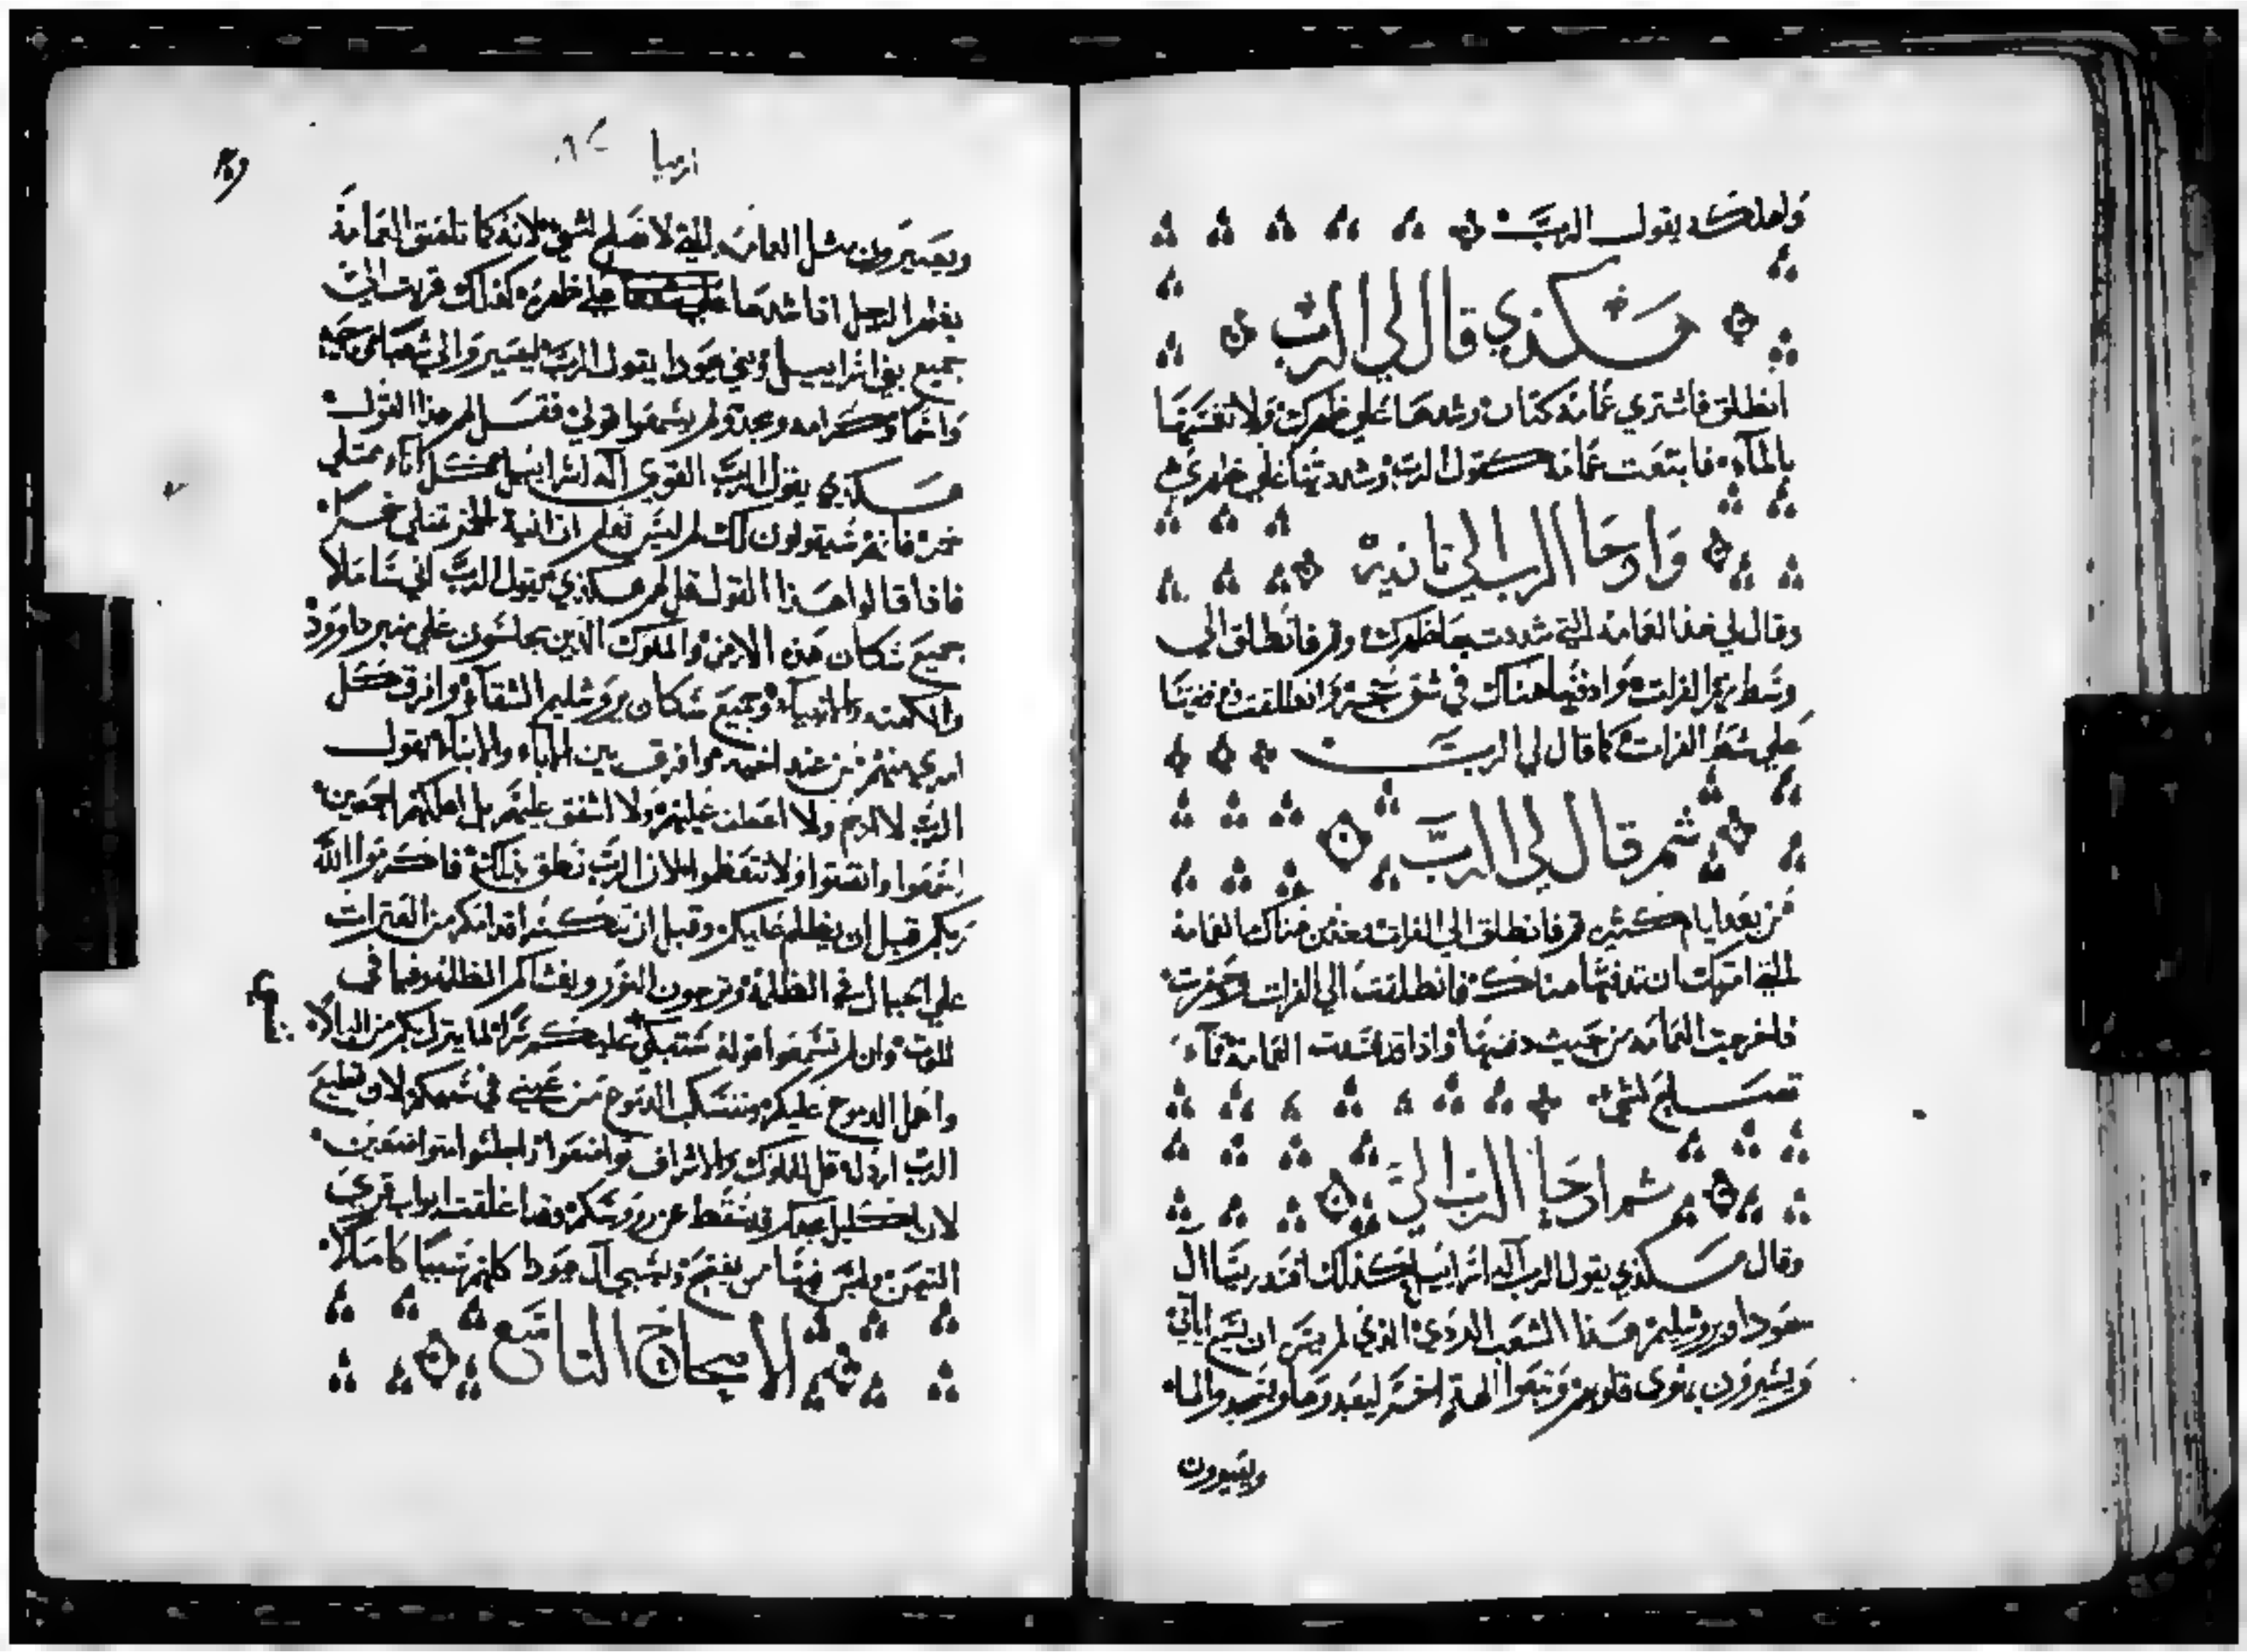 واهلكه يقول الرب
هكذي قال لي الرب
انطلق فاشتري عمامة كتان وشدها علي ظهرك ولا تغسها
بالماء فابتعت عمامة كقول الرب وشددتها علي ظهري
واوحا الرب الي ثانية
وقال لي خذ العمامة التي شددت بها ظهرك وقم فانطلق الي
وسط نهر الفرات وادفنها هناك في شق وانطلقت
علي شط الفرات كما قال لي الرب
ثم قال لي الرب
من بعد ايام كثيره قم فانطلق الي الفرات وخذ من هناك العمامة
التي امرتك ان تدفنها هناك فانطلقت الي الفرات وحفرت
فاخرجت العمامه من حيث دفنتها واذا قد فسدت العمامة
تصلح لشي
ثم اوحا الرب الي
وقال هكذي يقول الرب اله اسراييل كذلك افسد ال
يهودا ويروشليم هذا الشعب الردي الذي لم ان يسمع
ويسيرون بهوى قلوبهم وتبعوا الهة اخر ليعبدوها ويسجدوا لها
ويصيرون
ارميا
ويصيرون مثل العمامه التي لا تصلح لشي لانه كما تلصق العمامة
بظهر الرجل اذا شدها علي ظهره كذلك قربت الي
جميع بني اسراييل وبني يهودا يقول الرب ليصيروا لي شعبا
وكرامه ومجد ولم يسمعوا قولي فقل لهم هذا القول
هكذي يقول الرب القوي اله اسراييل كل اناء ممتلي
خمر فانهم سيقولون لك لم ليس نعلم ان انية الخمر تمتلي خمرا
فاذا قالوا هذا القول قل لهم هكذي يقول الرب اني ساملا
جميع سكان هذه الارض والملوك الذين يجلسون علي منبر داوود
والكهنه والانبياء وجميع سكان يروشليم الشقاء وافرق كل
امري منهم من عند اخيه وافرق بين الاباء والابناء يقول
الرب لا ارحم ولا اعطف عليهم ولا اشفق عليهم بل اهلكهم اجمعين
اسمعوا وانصتوا ولا تتعظموا لان الرب نطق بذلك فاكرموا الله
ربكم قبل ان يظلم عليكم وقبل ان اقدامكم من العثرات
علي الجبال في الظلمة وترجون النور ويغشاكم الظلمة وفيها في
الموت وان لم تسمعوا قوله ستبكي عليكم سرا لما ينزل بكم من البلاء
واهل الدموع عليكم وتنسكب الدموع من عيني في
الرب قل للملوك والاشراف تواضعوا واجلسوا متواضعين
لان اكليل مجدكم قد سقط عن رووسكم وقد اغلقت ابواب قري
التيمن وليس فيها من يفتح وسبي ال يهودا كلهم سبيا كاملا
الاصحاح التاسع